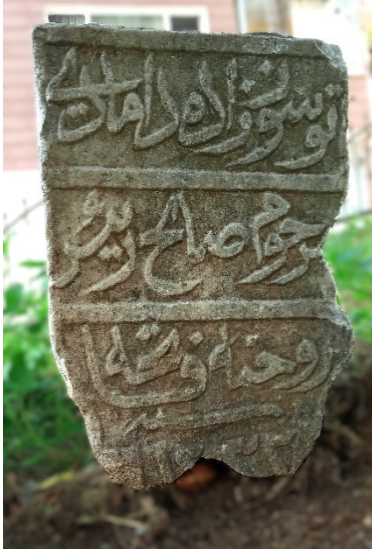 توسون زاده دامادى
مرحوم صالح رئيس
روحنه فاتحه
سنه